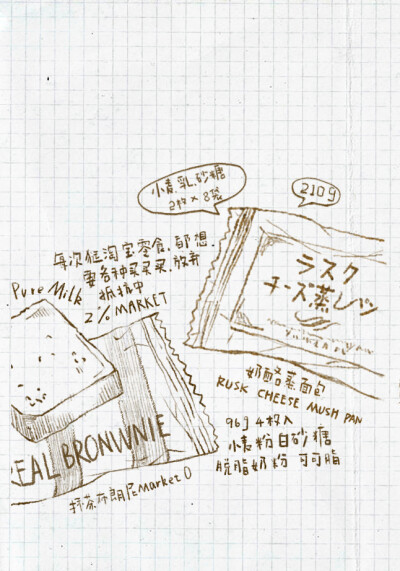 小麦.乳.砂糖
2枚×8袋
210g
每次逛淘宝零食.都想.
要各种买买买.放弃
抵抗中
2% MARKET
Pure Milk
ラスク
チーズ蒸しパン
奶酪蒸面包
RUSK CHEESE MUSH PAN
96g 4枚入
小麦粉白砂糖
脱脂奶粉 可可脂
REAL BRONWNIE
抹茶布朗尼Market O